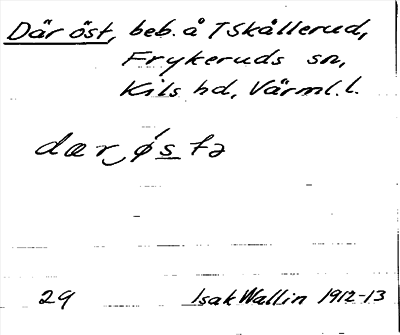 Där öst, beb. å TSkållerud,
Frykeruds sn,
Kils hd, Värml. l.
dær østə
29 Isak Wallin 1912-13